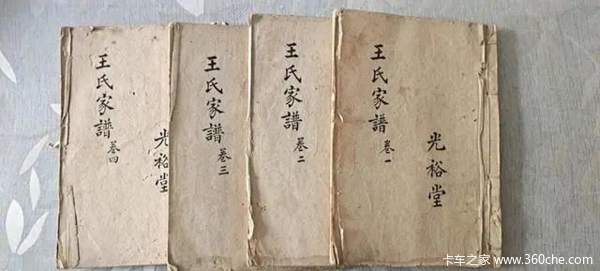 王氏家譜 卷一
光裕堂
王氏家譜 卷二
王氏家譜 卷三
王氏家譜 卷四
光裕堂
卡车之家 www.360che.com